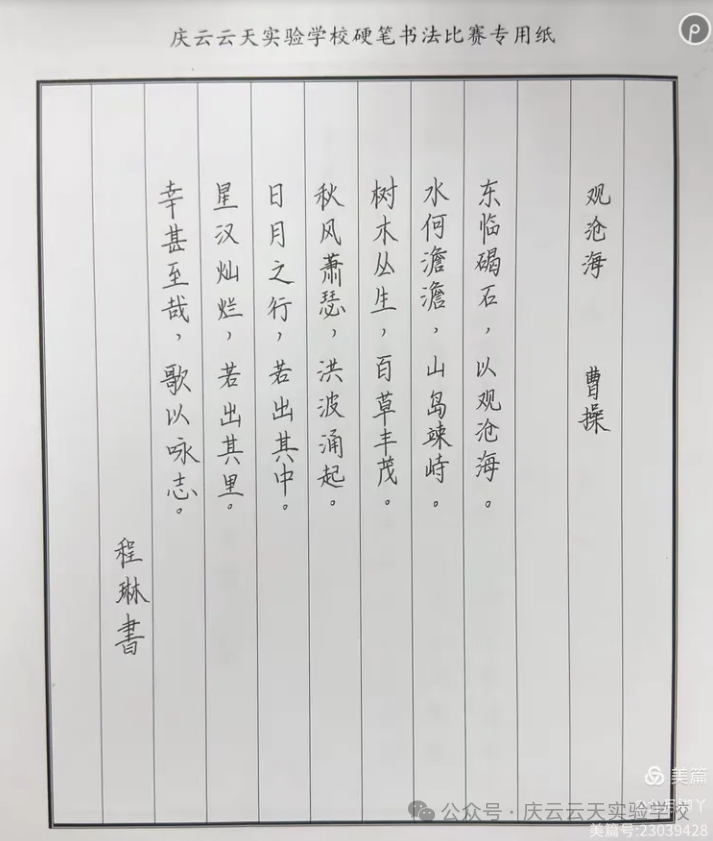 庆云云天实验学校硬笔书法比赛专用纸
观沧海 曹操
东临碣石，以观沧海。
水何澹澹，山岛竦峙。
树木丛生，百草丰茂。
秋风萧瑟，洪波涌起。
日月之行，若出其中。
星汉灿烂，若出其里。
幸甚至哉，歌以咏志。
程琳書
美篇
公众号·庆云云天实验学校
美篇号:23039428